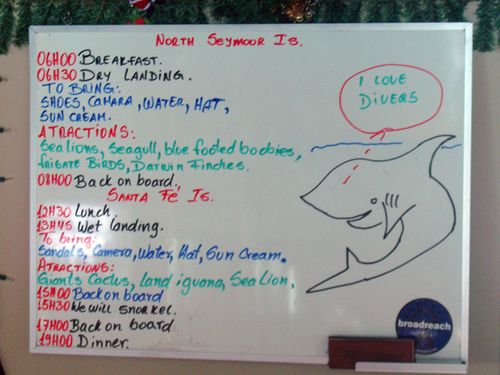 NORTH SEYMOUR IS.
06H00 BREAKFAST.
06H30 DRY LANDING.
TO BRING:
SHOES, CAMARA, WATER, HAT,
SUN CREAM.
ATRACTIONS:
Sealions, Seagull, blue footed boobies,
frigate BIRDS, DARWIN FINCHES.
08H00 Back on board.
SANTA FÉ IS.
12H30 Lunch.
13H45 Wet landing.
To bring:
Sandals, Camera, Water, Hat, Sun Cream.
ATRACTIONS:
Giants Cactus, land iguana, Sea Lion,
15H00 Back on board
15H30 We will snorkel.
17H00 Back on board
19H00 Dinner.
I LOVE
DIVERS
broadreach